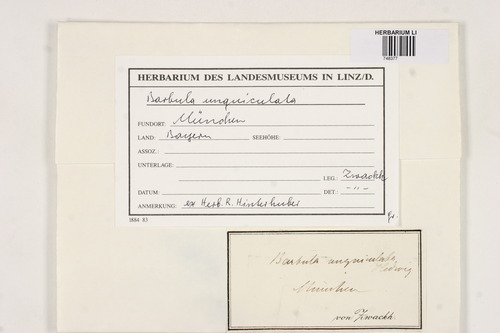 HERBARIUM LI
746377
HERBARIUM DES LANDESMUSEUMS IN LINZ/D.
Barbula unguiculata
FUNDORT: München
LAND: Bayern SEEHÖHE:
ASSOZ.:
UNTERLAGE:
LEG.: Zwackh
DATUM: DET.: -"-
ANMERKUNG: ex Herb. R. Hinterhuber
1884 83
Barbula unguiculata
Hedwig
München
von Zwackh.